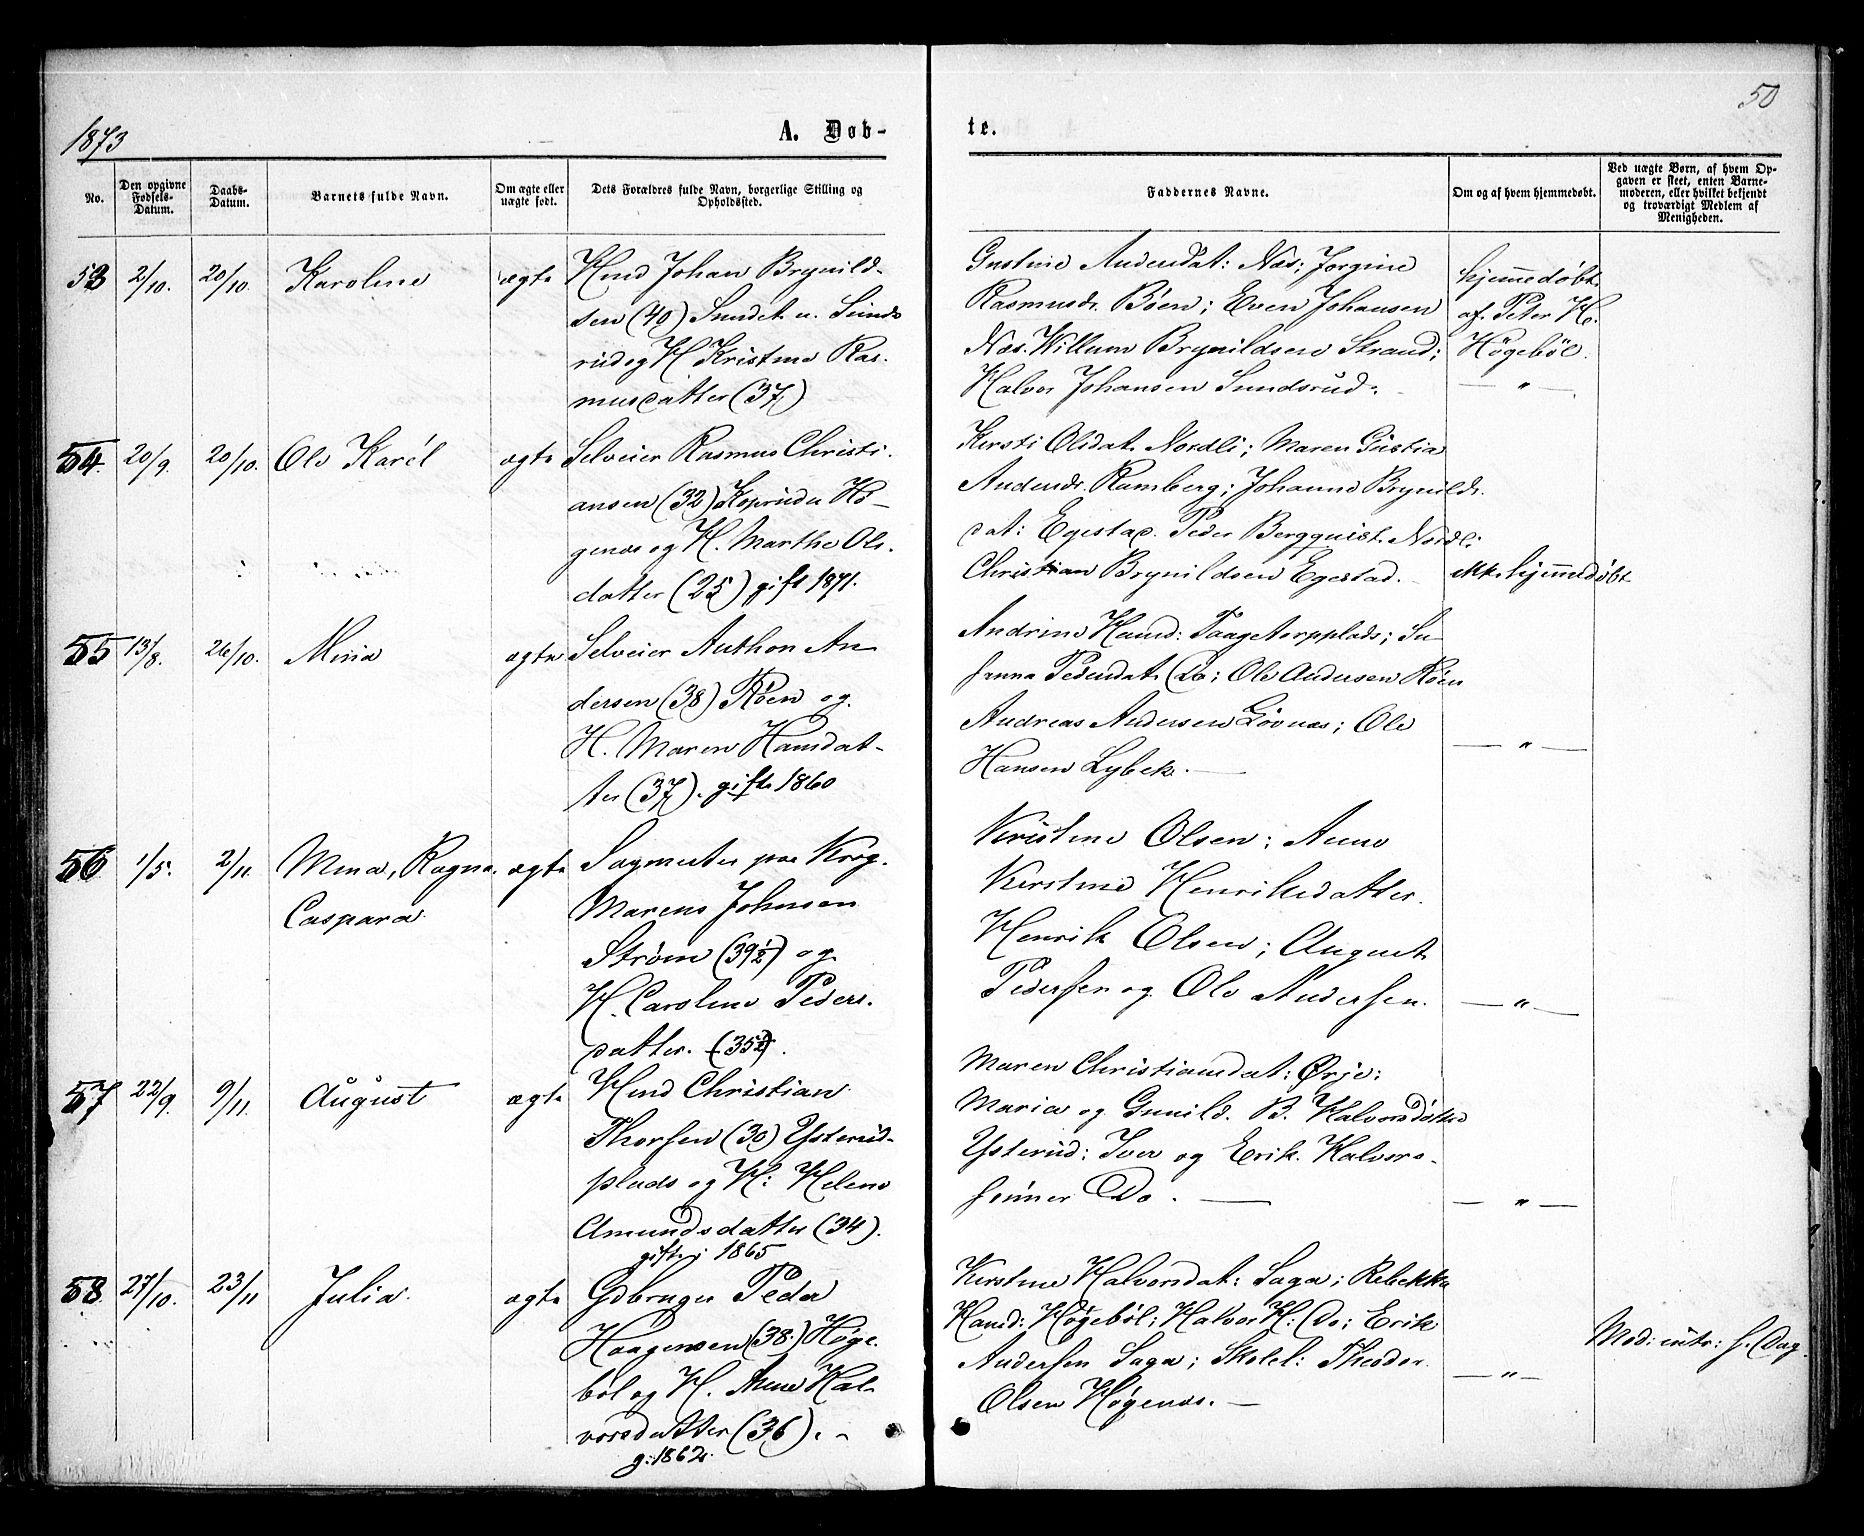 50
1873
A. Døb-
te.
No.
Den opgivne Fødsels-Datum.
Daabs-Datum.
Barnets fulde Navn.
Om ægte eller uægte født.
Dets Forældres fulde Navn, borgerlige Stilling og Opholdssted.
Faddernes Navne.
Om og af hvem hjemmedøbt.
Ved uægte Børn, af hvem Op-
gaven er skeet, enten Barne-
moderen, eller hvilket bekjendt
og troværdigt Medlem af
Menigheden.
53 2/10. 20/10. Karoline ægte Hmd Johan Brynild-
sen (40) Sundet u. Sunds
rud og H. Kristine Ras-
musdatter (37)
Gustine Andersdat: Næs; Jørgine
Rasmusdr. Böen; Even Johansen
Næs. Willum Brynildsen Strand;
Halvor Johansen Sundsrud.
hjemmedøbt
af Peter H.
Högeböl.
— " —
54. 20/9. 20/10. Ole Karél ægte Selveier Rasmus Christi-
ansen (32) Hö-
genæs og H. Marthe Ols-
datter (25) gift 1871.
Kersti Olsdat. Nordli; Maren Gustia
Andersdr. Ramberg; Johanne Brynilds-
dat: Egestad. Peder Bergquist Nordli
Christian Brynildsen Egestad.
ikke hjemmedøbt
55 13/8. 26/10. Mina ægte Selveier Anthon An-
dersen (38) Röen og
H. Maren Hansdat-
ter (37). gifte 1860
Andrine Hansd: Taagetorpplads; Su-
sanna Pedersdat. Do; Ole Andersen Röen
Andreas Andersen Lövnæs; Ole
Hansen Lybek. —
— " —
56 1/5. 2/11. Mina, Ragna, ægte Sagmester paa Krog.
Caspara
Marens Johnsen
Strøm (39½) og
H. Caroline Peders-
datter. (35½).
Kristine Olsen; Anne
Kirstine Henriksdatter.
Henrik Olsen; August
Pedersen og Ole Andersen.
— " —
57 22/9. 9/11. August ægte Hmd Christian
Thorsen (30) Ysterud-
plads og H: Helene
Amundsdatter (34).
gifte i 1865
Maren Christiansdat: Ørje;
Maria og Gunild. B. Halvorsdøttre
Ysterud; Iver og Erik Halvors-
sønner Do. —
— " —
58. 27/10. 23/11 Julia. ægte Gdbruger Peder
Haagensen (38.) Høge-
bøl og H. Anne Hal-
vorsdatter (36). -
g: 1862.
Kirstine Halvorsdat: Saga; Rebekka
Hansd: Høgeböl; Halvor H: Do; Erik
Andersen Saga; Skolel: Theodor
Olsen Høgenæs. —
— " —
Mod: intr: s. Dag.